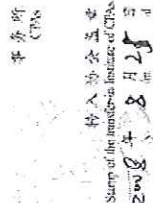 事务所
CPAs
转入协会盖章
Stamp of the transfer-in Institute of CPAs
2008 年 8 月 日
/m /d